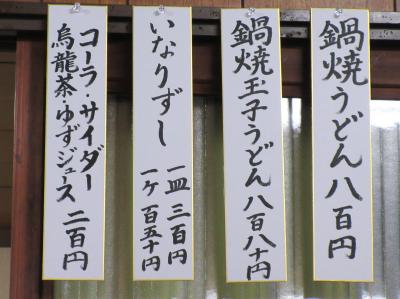 鍋焼うどん八百円
鍋焼玉子うどん八百八十円
いなりずし
一皿 三百円
一ヶ 百五十円
コーラ・サイダー
烏龍茶・ゆずジュース 二百円